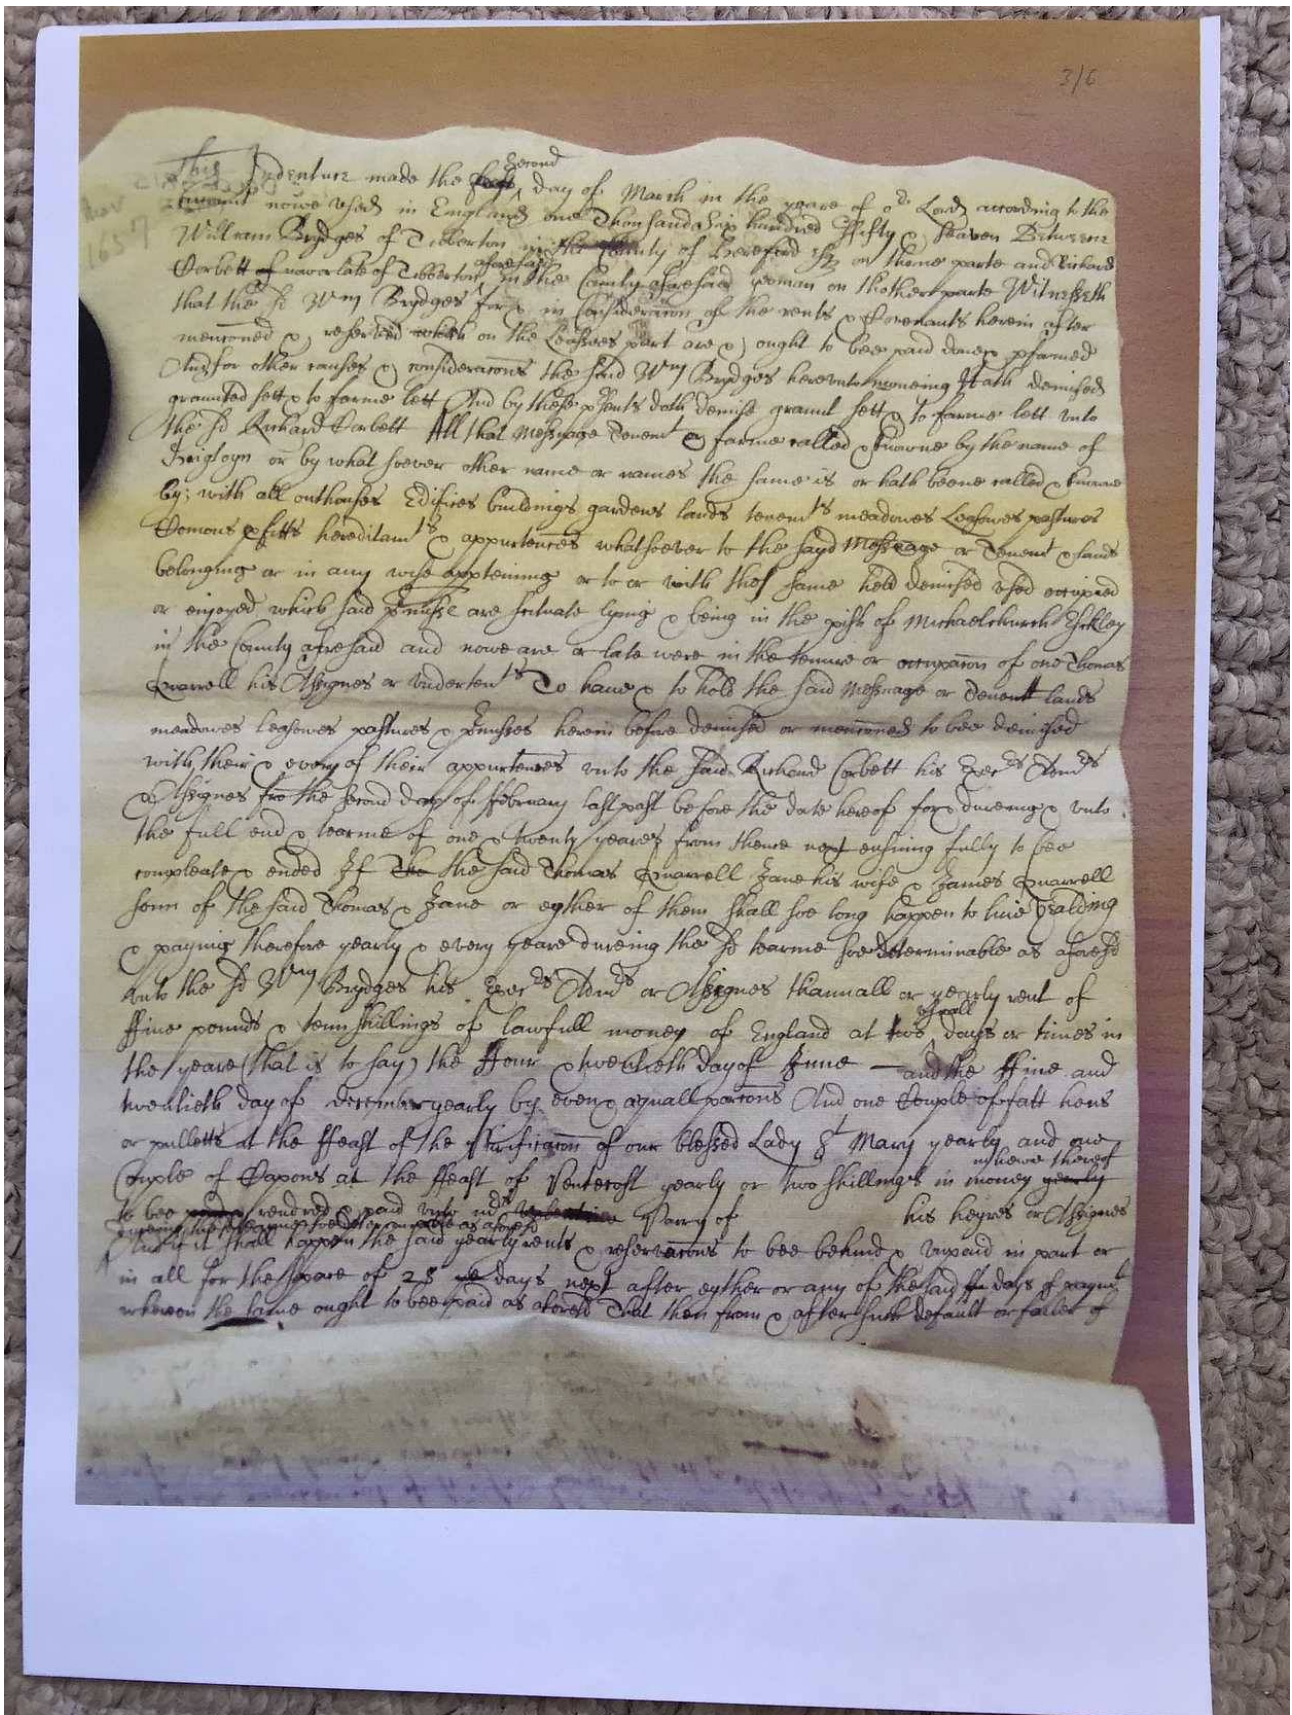 3/6
Second
This Indenture made the first day of March in the yeare of or Lord according to the
Mar
1657
accompt nowe used in England one Thousand Six hundred ffifty & seaven Betweene
William Brydges of Tibberton in the County of Hereford Esq on thone parte and Richard
aforesaid
Corbett of now or late of Tibberton in the County aforesaid yeoman on thother parte Witnesseth
that the sd Wm Brydges for & in Consideracon of the rents & Covenants herein after
menconed & reserved which on the Leassees part are & ought to bee paid done & pformed
And for other causes & consideracons the said Wm Brydges hereunto moveing Hath demised
graunted sett & to farme lett And by these psents doth demise graunt sett & to farme lett unto
the sd Richard Corbett All that Messuage Tenemt & farme called & knowne by the name of
or by what soever other name or names the same is or hath beene called & knowne
by; with all outhouses Edifices buildings gardens lands tenemts meadowes Leasowes pastures
Comons pfitts hereditamts & appurtences whatsoever to the sayd Messuage or Tenemt & lands
belonging or in any wise apptening or to or with the same held demised used occupied
or enjoyed which said pmisses are scituate lying & being in the pish of Michaelchurch Eskley
in the County aforesaid and nowe are or late were in the tenure or occupacon of one Thomas
Quarrell his Assignes or undertents To have & to hold the said Messuage or Tenemt lands
meadowes leasowes pastures & pmisses herein before demised or menconed to bee demised
with their & every of their appurtences unto the said Richard Corbett his Execrs Admrs
& Assignes fro the second day of ffebruary last past before the date hereof for & dureing & unto
the full end & tearme of one & twenty yeares from thence next ensuing fully to bee
compleate & ended If the said Thomas Quarrell Jane his wife & James Quarrell
sonn of the said Thomas & Jane or eyther of them shall soe long happen to live Yealding
& paying therefore yearly & every yeare dureing the sd tearme soe determinable as aforesd
unto the sd Wm Brydges his Execrs Admrs or Assignes thannall or yearly rent of
ffive pounds & tenn shillings of lawfull money of England at two usuall days or times in
the yeare (that is to say) the ffour & twentieth day of June and the ffive and
twentieth day of december yearly by even & aequall porcons And one Couple of fatt hens
or pulletts at the ffeast of the Purificacon of our blessed Lady St Mary yearly and one
in liewe thereof
Couple of Capons at the ffeast of Pentecost yearly or two shillings in money yearly
to bee rendred & paid unto Parry of his heyres or Assignes
dureing the tearme soe determinable as aforesd
And if it shall happen the said yearly rents & reservacons to bee behind & unpaid in part or
in all for the space of 28 days next after eyther or any of the said days of paymt
whereon the same ought to bee paid as aforesd That then from & after such default or failer of